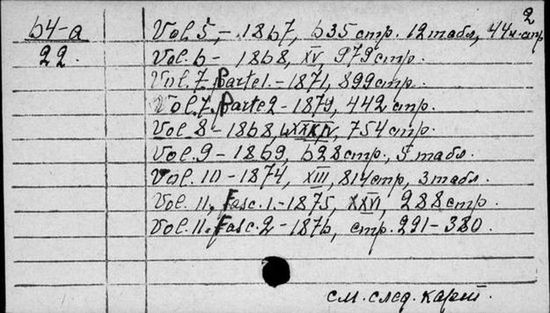 2
64-а
22.
Vol. 5, - 1867, 635 стр. 12 табл., 44 к. стр.
Vol. 6 - 1868, XV, 979 стр.
Vol. 7. Parte 1. - 1871, 899 стр.
Vol. 7. Parte 2 - 1879, 442 стр.
Vol. 8 - 1868, 754 стр.
Vol. 9 - 1869, 628 стр., 5 табл.
Vol. 10 - 1874, XIII, 814 стр, 3 табл.
Vol. 11, Fasc. 1. - 1875, XXVI, 288 стр.
Vol. 11. Fasc. 2 - 1876, стр. 291-380.
см. след. карт.